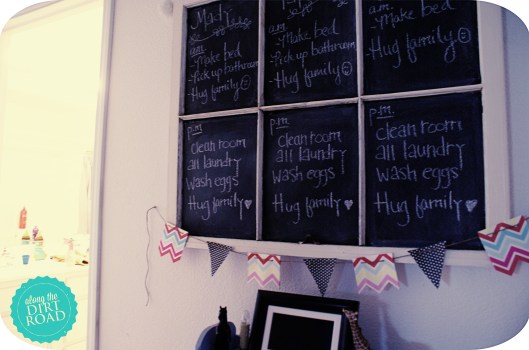 Mady
a.m.
-Make bed
-Pick up bathroom
-Hug family☺
a.m.
-Make bed
-Pick up bathroom
-Hug family☺
a.m.
-Make bed
-Hug family☺
p.m.
clean room
all laundry
wash eggs
Hug family♥
p.m.
clean room
all laundry
wash eggs
Hug family♥
p.m.
clean room
all laundry
wash eggs
Hug family♥
along the
DIRT
ROAD